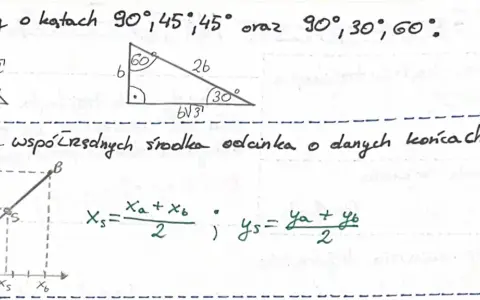 o kątach 90°, 45°, 45° oraz 90°, 30°, 60°.
60° 2b
b
30°
b√3
współrzędnych środka odcinka o danych końcach
B
S
xs = xa + xb / 2 ; ys = ya + yb / 2
xs xb